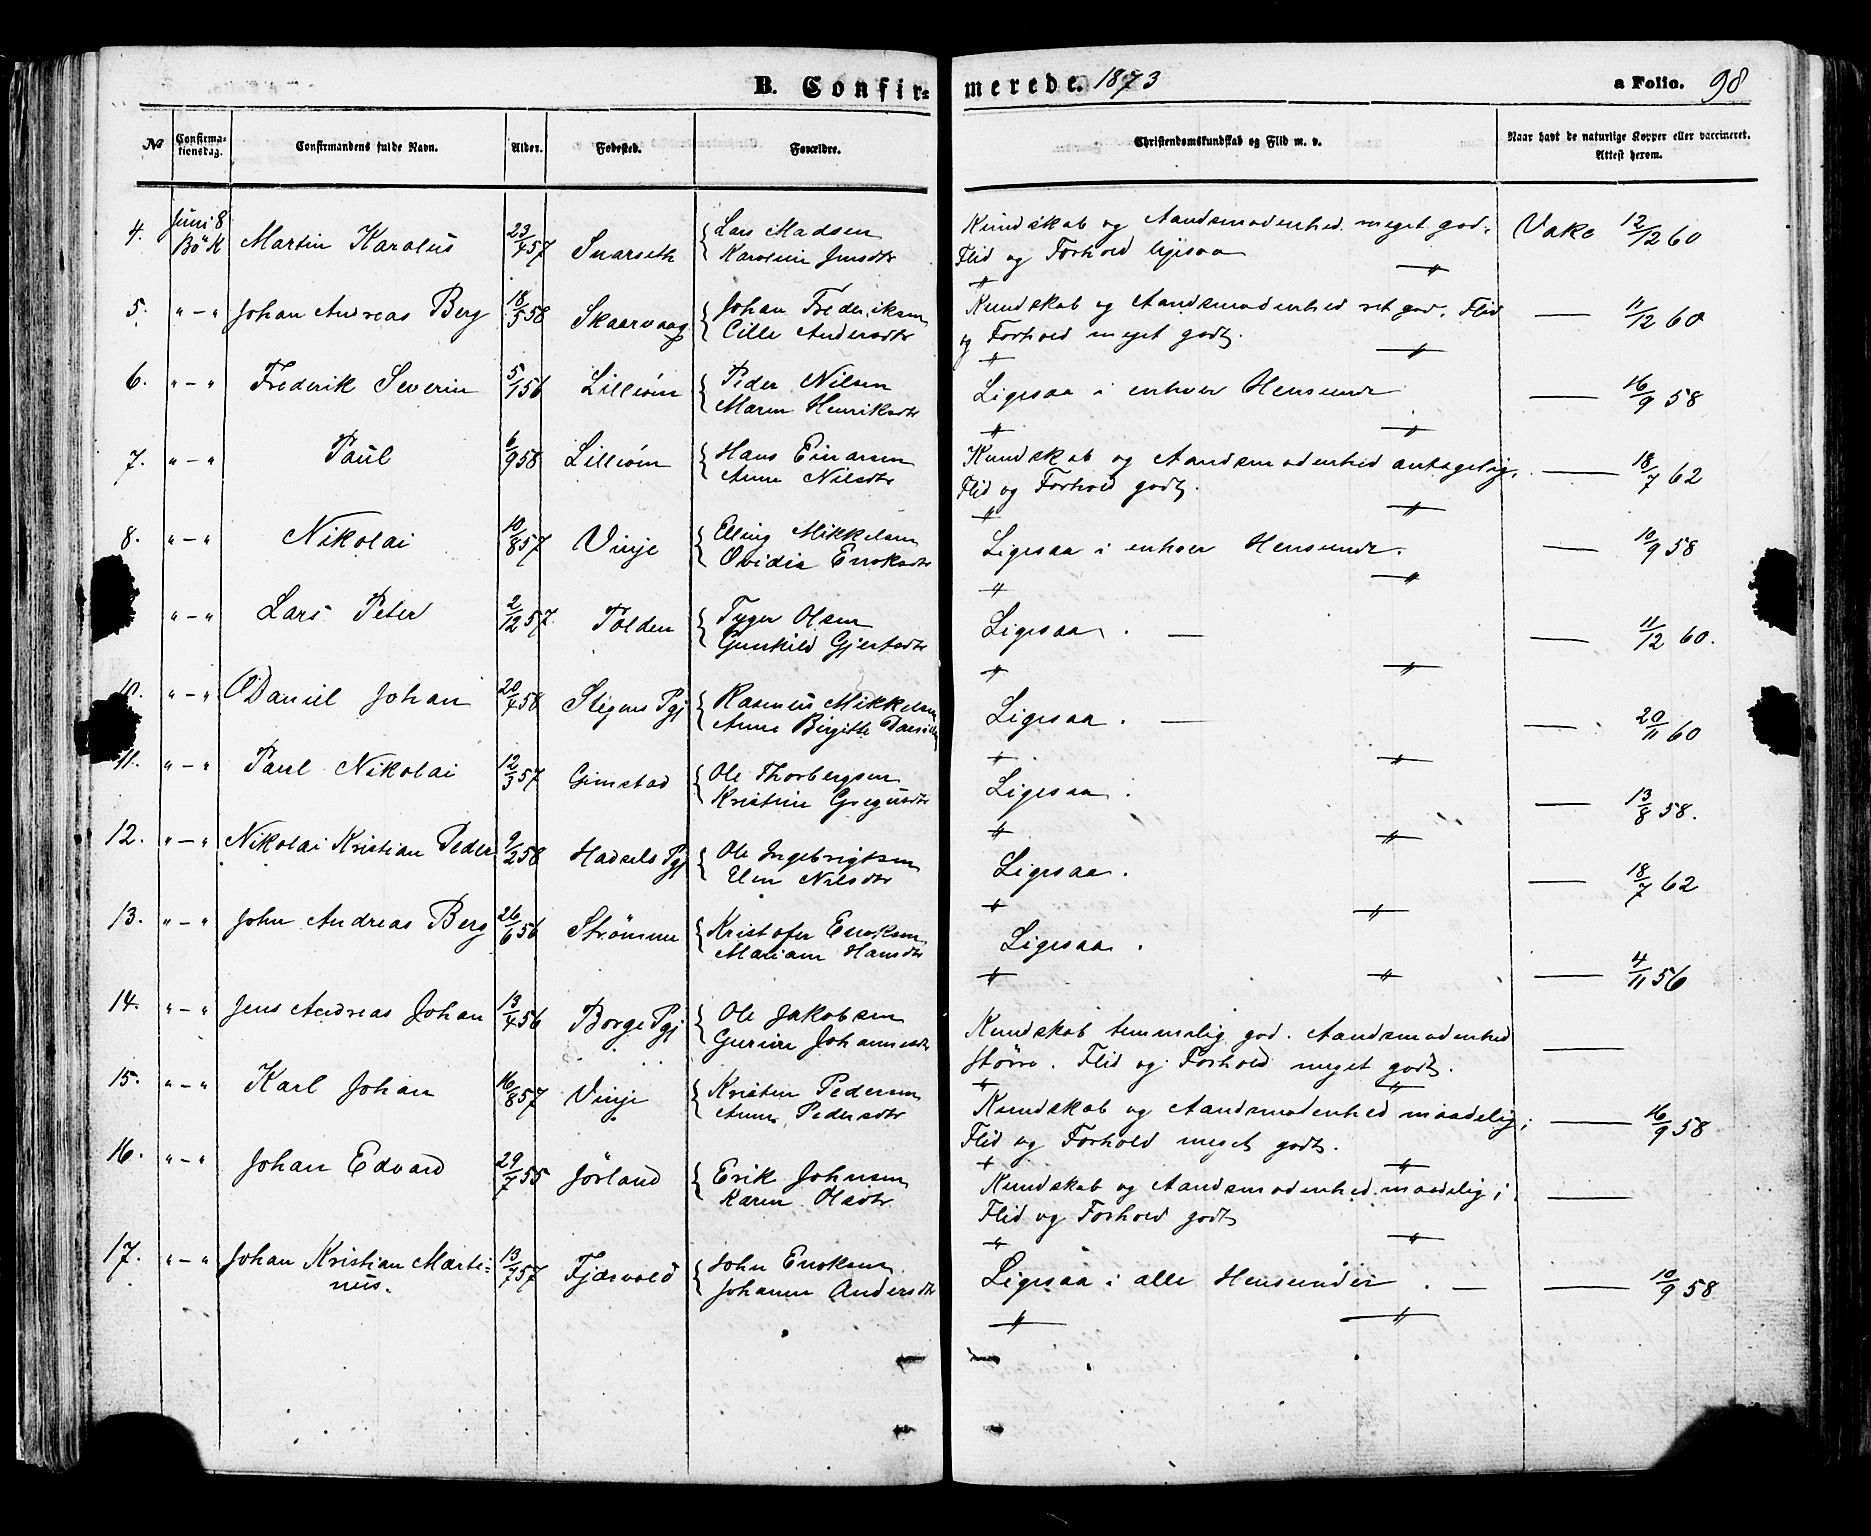 B. Confirmerede. 1873 a Folio. 98
No Confirmationsdag. Confirmandens fulde Navn. Alder. Fødested. Forældre. Christendomskundskab og Flid m. v. Naar havt de naturlige Kopper eller vaccineret. Attest herom.
4. Juni 8 Bö K Martin Karolus 23/4 57 Snarseth Lars Madsen Kundskab og Aandsmodenhed meget god. Vake 12/12 60
Karoline Jensdtr Flid og Forhold ligesaa
5. " - " Johan Andreas Berg 18/5 58 Skaarvaag Johan Frederiksen Kundskab og Aandsmodenhed ret god. Flid — 11/12 60
Cille Andersdtr og Forhold meget godt.
6. " - " Frederik Severin 5/1 56 Lilleöen Peder Nilsen Ligesaa i enhver Henseende — 16/9 58
Maren Henriksdtr
7. " - " Paul 6/9 58 Lilleöen Hans Einarsen Kundskab og Aandsmodenhed antagelig. — 18/7 62
Anne Nilsdtr Flid og Forhold godt.
8. " - " Nikolai 10/8 57 Vinje Elling Mikkelsen Ligesaa i enhver Henseende. — 10/9 58
Ovidia Enoksdtr
" - " Lars Peter 2/12 57. Tolden Tyger Olsen Ligesaa. — — 11/12 60.
Gunhild Gjertsdtr
10. " - " Daniel Johan 20/4 58 Stegens Pgj Rasmus Mikkelsen Ligesaa. — — 20/11 60
Anne Birgitte
11. " - " Paul Nikolai 12/3 57 Gimstad Ole Thorbergsen Ligesaa. — 13/8 58.
Kristine Gregusdtr
12. " - " Nikolai Kristian Peder 9/2 58 Hadsels Pgj Ole Ingebrigtsen Ligesaa. — 18/7 62
Elen Nilsdtr
13. " - " John Andreas Berg 26/6 56 Strömme Kristofer Enoksen Ligesaa. — 4/11 56
Mariane Hansdtr
14. " - " Jens Andreas Johan 13/4 56 Borge Pgj Ole Jakobsen Kundskab temmelig god. Aandsmodenhed —
Gurine Johannesdtr större. Flid og Forhold meget godt.
15. " - " Karl Johan 16/8 57 Vinje Kristen Pedersen Kundskab og Aandsmodenhed maadelig; — 16/9 58
Anne Pedersdtr Flid og Forhold meget godt.
16. " - " Johan Edvard 29/7 55 Jörland Erik Johnsen Kundskab og Aandsmodenhed maadelig; —
Karen Olsdtr Flid og Forhold godt
17. " - " Johan Kristian Marti- 13/7 57 Fjærvold John Enoksen Ligesaa i alle Henseender. — — 10/9 58
nus. Johanne Andersdtr